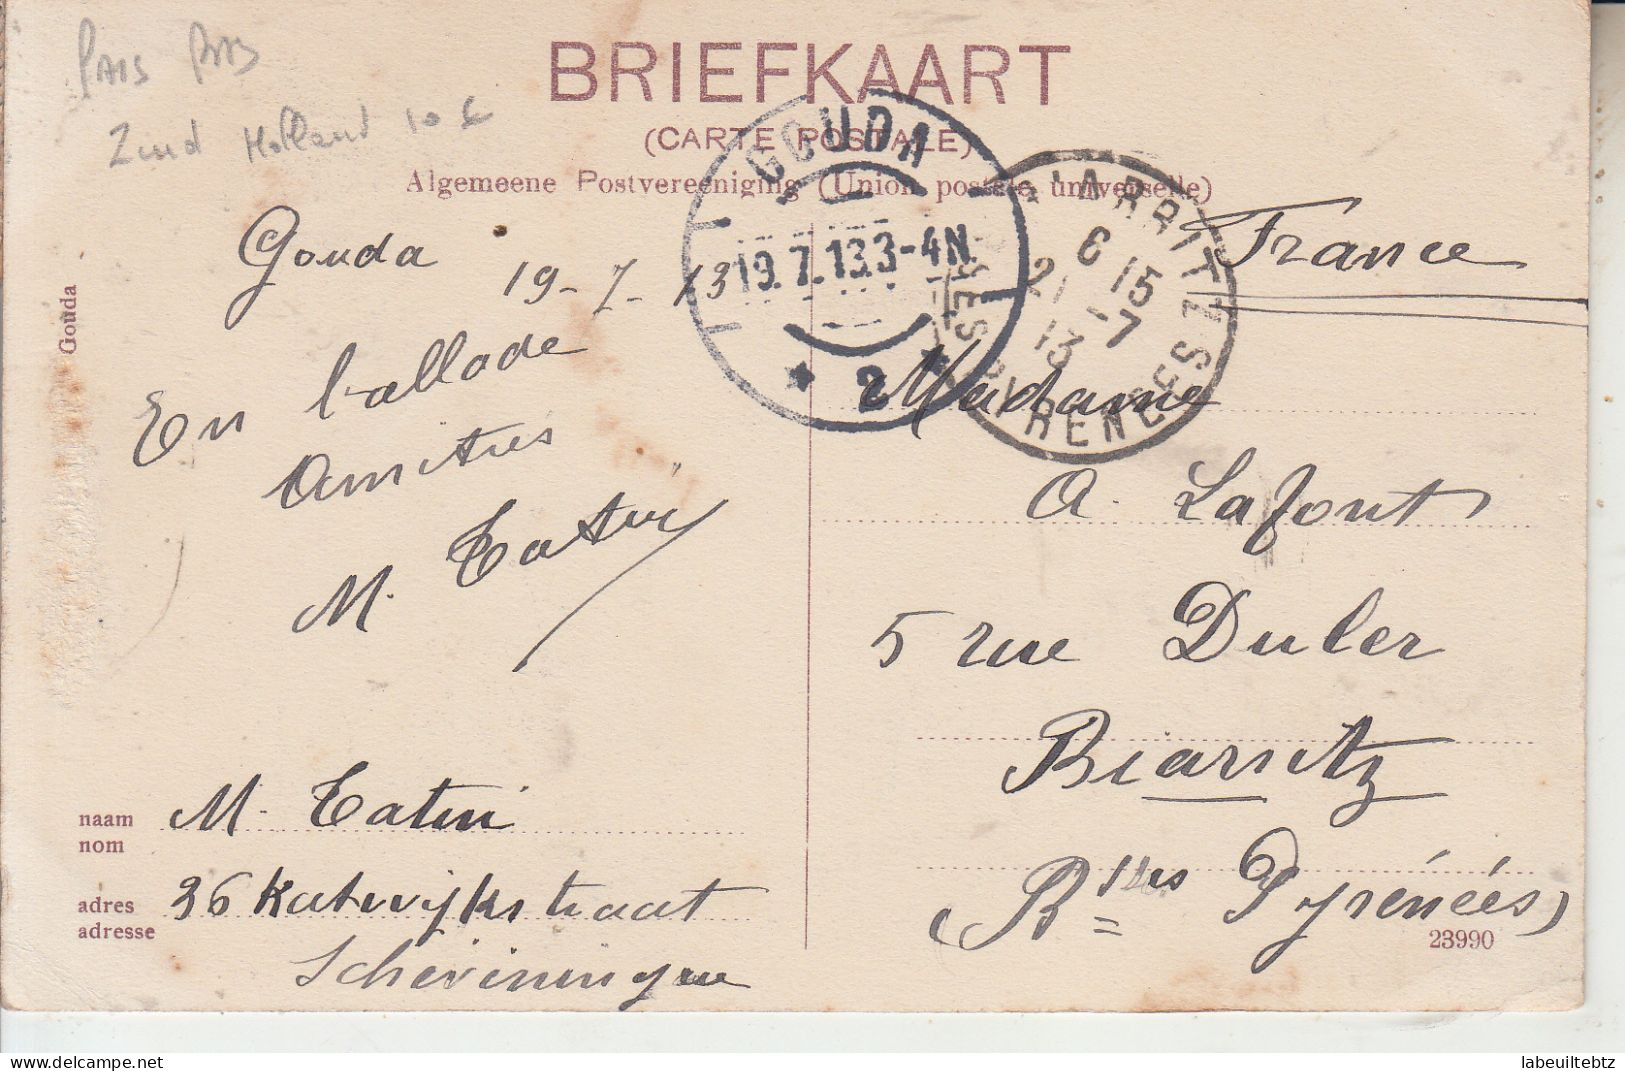 PAIS BAS
Zuid Holland 10 €
BRIEFKAART
(CARTE POSTALE)
Algemeene Postvereeniging (Union postale universelle)
GOUDA
19.7.13.3-4N.
* 2 *
BIARRITZ
6 15
21-7
13
BSES PYRENEES
Gouda
Gouda
19-7-13
En ballade
Amitiés
M. Tatin
France
Madame
A. Lafont
5 rue Duler
Biarritz
(Bsses Pyrénées)
naam
nom
M. Tatin
adres
adresse
36 Katwijkstraat
Scheviningue
23990
delcampe.net
labeuiltebtz